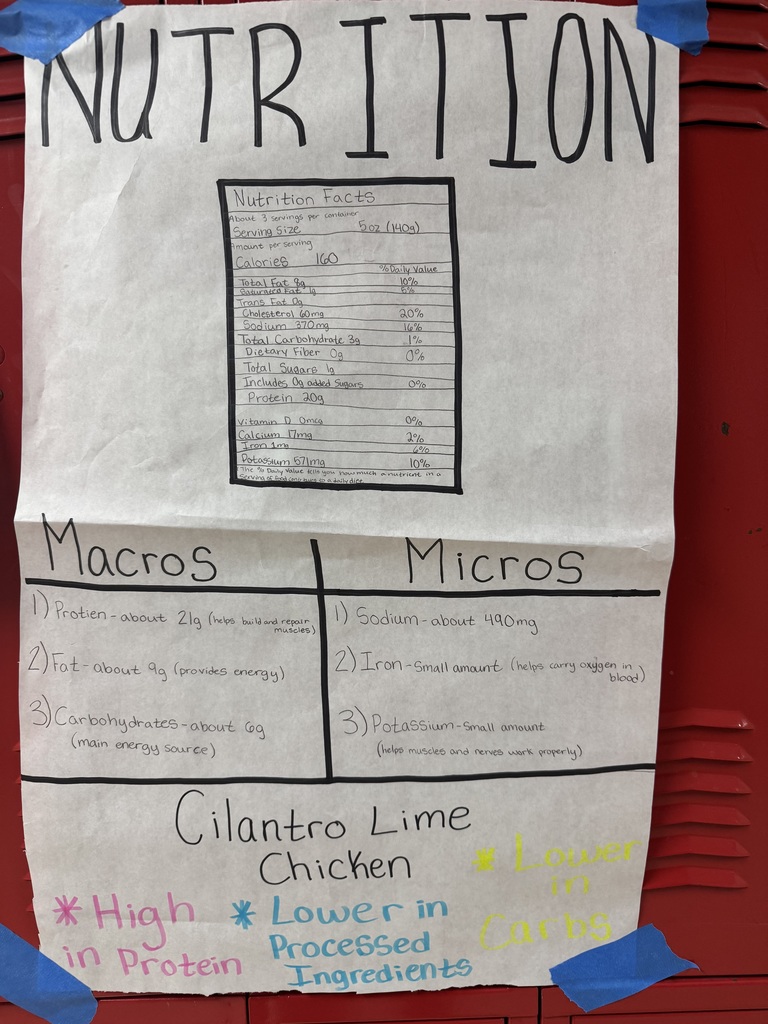 NUTRITION
Nutrition Facts
About 3 servings per container
Serving size 5oz (140g)
Amount per serving
Calories 160
% Daily Value
Total Fat 8g 10%
Saturated Fat 1g 5%
Trans Fat 0g
Cholesterol 60mg 20%
Sodium 370mg 16%
Total Carbohydrate 3g 1%
Dietary Fiber 0g 0%
Total Sugars 1g
Includes 0g added Sugars 0%
Protein 20g
Vitamin D 0mcg 0%
Calcium 17mg 2%
Iron 1mg 6%
Potassium 571mg 10%
The % Daily Value tells you how much a nutrient in a
serving of food contributes to a daily diet.
Macros
1) Protien - about 21g (helps build and repair
muscles)
2) Fat - about 9g (provides energy)
3) Carbohydrates - about 6g
(main energy source)
Micros
1) Sodium - about 490mg
2) Iron - Small amount (helps carry oxygen in
blood)
3) Potassium - Small amount
(helps muscles and nerves work properly)
Cilantro Lime
Chicken
* High
in Protein
* Lower in
Processed
Ingredients
* Lower
in
Carbs